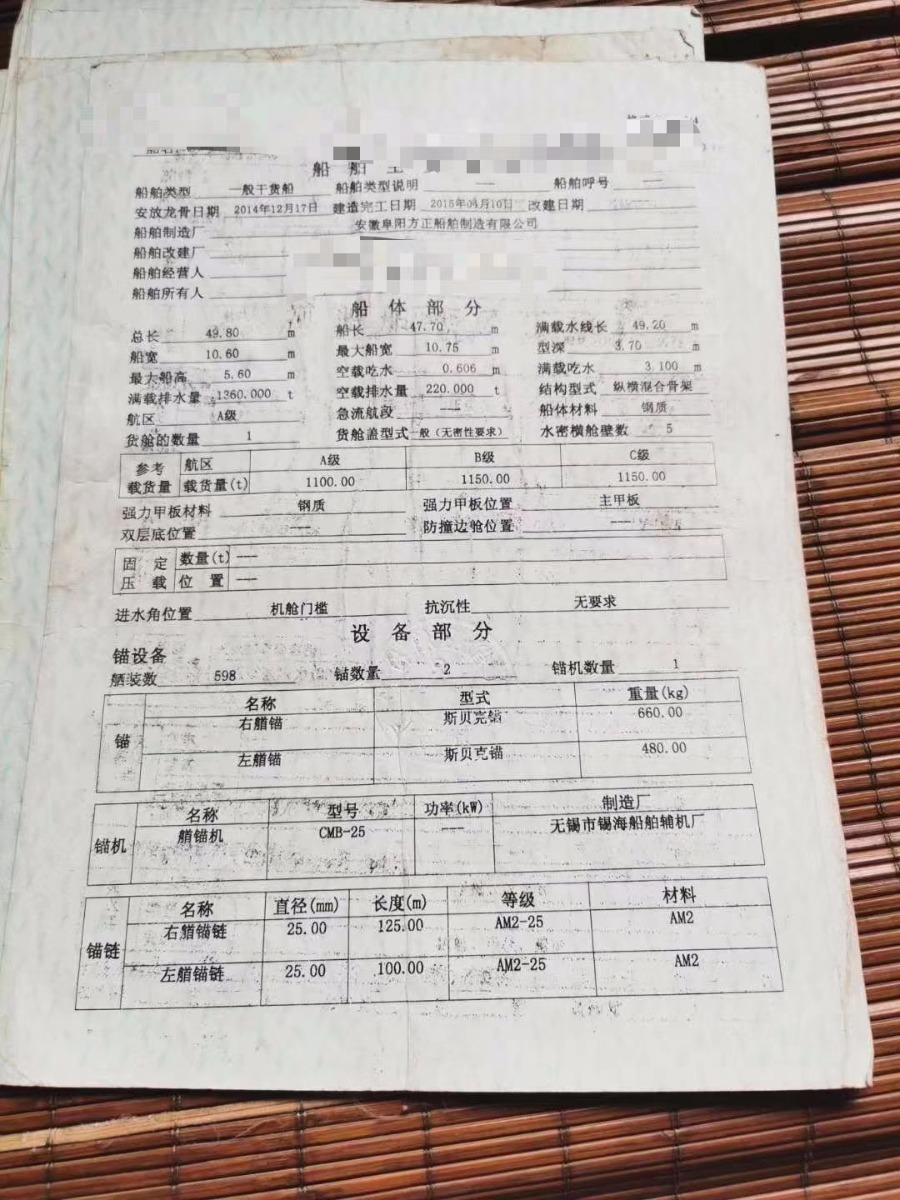 船舶主
船舶类型 一般干货船 船舶类型说明 --- 船舶呼号 ---
安放龙骨日期 2014年12月17日 建造完工日期 2015年04月10日 改建日期
船舶制造厂 安徽阜阳方正船舶制造有限公司
船舶改建厂
船舶经营人
船舶所有人
船体部分
总长 49.80 m 船长 47.70 m 满载水线长 49.20 m
船宽 10.60 m 最大船宽 10.75 m 型深 3.70 m
最大船高 5.60 m 空载吃水 0.606 m 满载吃水 3.100 m
满载排水量 1360.000 t 空载排水量 220.000 t 结构型式 纵横混合骨架
航区 A级 急流航段 --- 船体材料 钢质
货舱的数量 1 货舱盖型式 一般（无密性要求） 水密横舱壁数 5
参考载货量 航区 A级 B级 C级
载货量(t) 1100.00 1150.00 1150.00
强力甲板材料 钢质 强力甲板位置 主甲板
双层底位置 --- 防撞边舱位置 ---
固定压载 数量(t) ---
位置 ---
进水角位置 机舱门槛 抗沉性 无要求
设备部分
锚设备
舾装数 598 锚数量 2 锚机数量 1
锚 名称 型式 重量(kg)
右艏锚 斯贝克锚 660.00
左艏锚 斯贝克锚 480.00
锚机 名称 型号 功率(kW) 制造厂
艏锚机 CMB-25 --- 无锡市锡海船舶辅机厂
锚链 名称 直径(mm) 长度(m) 等级 材料
右艏锚链 25.00 125.00 AM2-25 AM2
左艏锚链 25.00 100.00 AM2-25 AM2